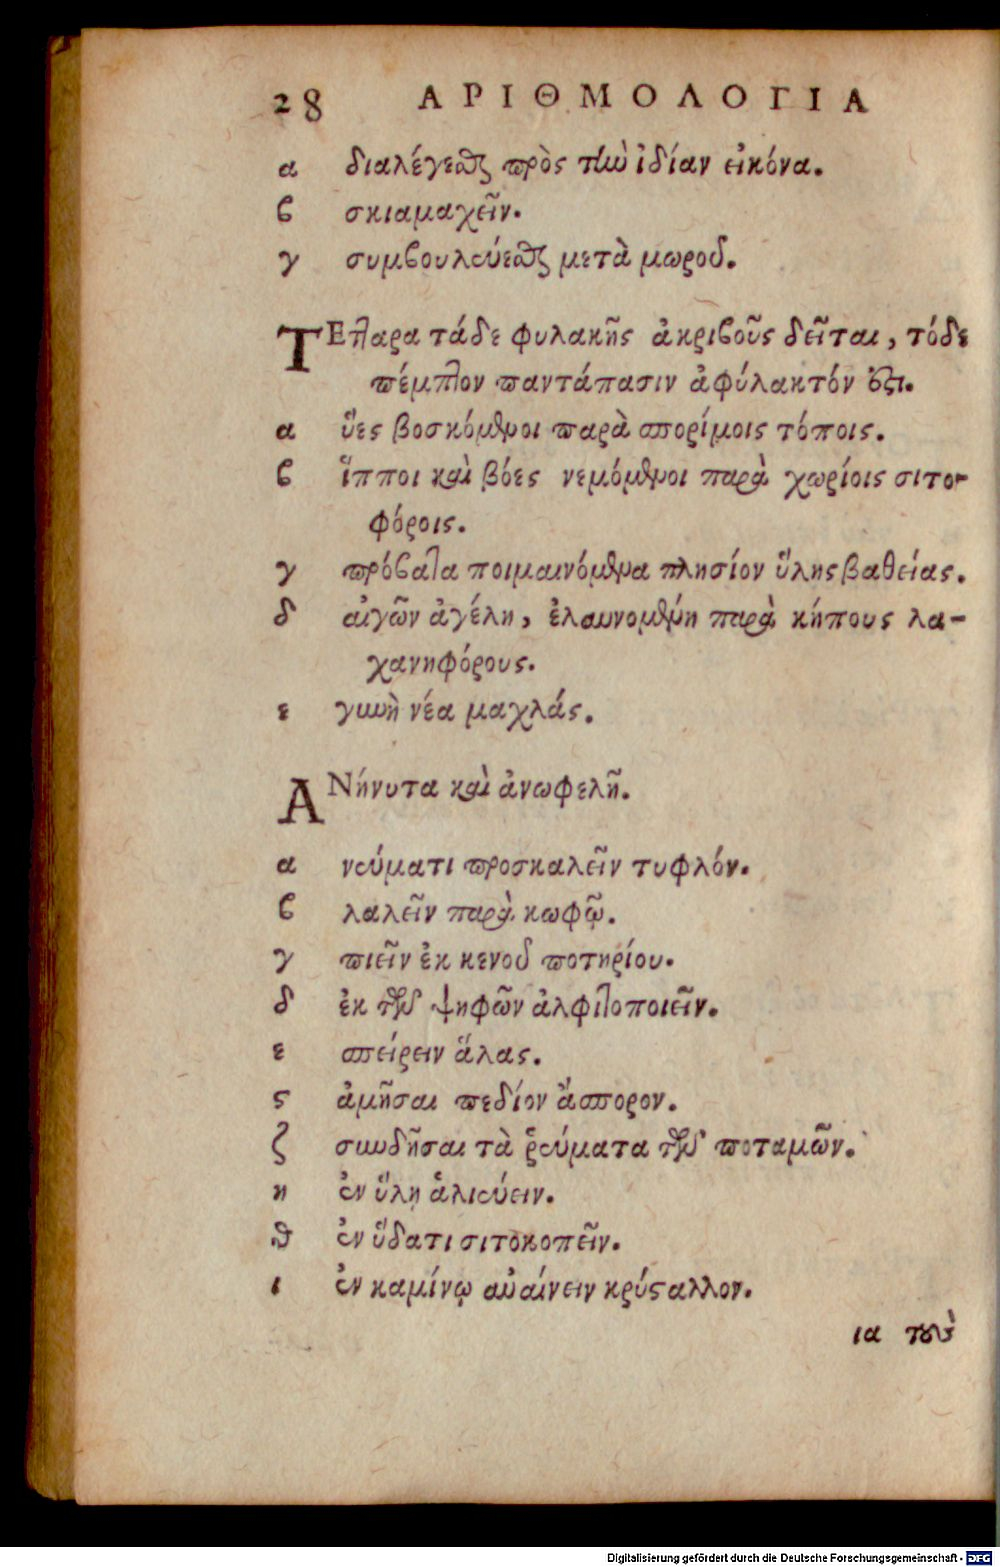 28 ΑΡΙΘΜΟΛΟΓΙΑ
α διαλέγεσθαι πρὸς τὴν ἰδίαν εἰκόνα.
ϐ σκιαμαχεῖν.
γ συμϐουλεύεσθαι μετὰ μωροῦ.
ΤΕτταρα τάδε φυλακῆς ἀκριϐοῦς δεῖται, τόδε
πέμπτον παντάπασιν ἀφύλακτόν ἐστι.
α ὕες βοσκόμενοι παρὰ σπορίμοις τόποις.
ϐ ἵπποι καὶ βόες νεμόμενοι παρὰ χωρίοις σιτο-
φόροις.
γ πρόϐατα ποιμαινόμενα πλησίον ὕλης βαθείας.
δ αἰγῶν ἀγέλη, ἐλαυνομένη παρὰ κήπους λα-
χανηφόρους.
ε γυνὴ νέα μαχλάς.
ΑΝήνυτα καὶ ἀνωφελῆ.
α νεύματι προσκαλεῖν τυφλόν.
ϐ λαλεῖν παρὰ κωφῷ.
γ πιεῖν ἐκ κενοῦ ποτηρίου.
δ ἐκ τῶν ψηφῶν ἀλφιτοποιεῖν.
ε σπείρειν ἅλας.
ϛ ἀμῆσαι πεδίον ἄσπορον.
ζ συνδῆσαι τὰ ῥεύματα τῶν ποταμῶν.
η ἐν ὕλῃ ἁλιεύειν.
θ ἐν ὕδατι σιτοκοπεῖν.
ι ἐν καμίνῳ αὐαίνειν κρύσταλλον.
ια τοὺς
Digitalisierung gefördert durch die Deutsche Forschungsgemeinschaft - DFG